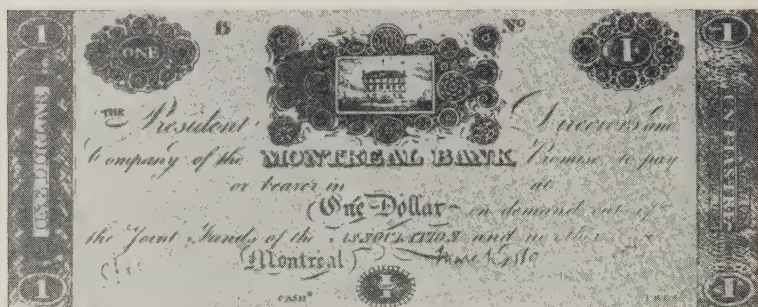 1 ONE B No 1 1
THE President Directors and
Company of the MONTREAL BANK Promise to pay
or bearer in at
One Dollar on demand out of
the Joint Funds of the ASSOCIATION and no other
Montreal
CASHR
1 1 1
ONE DOLLAR
UNE PIASTRE